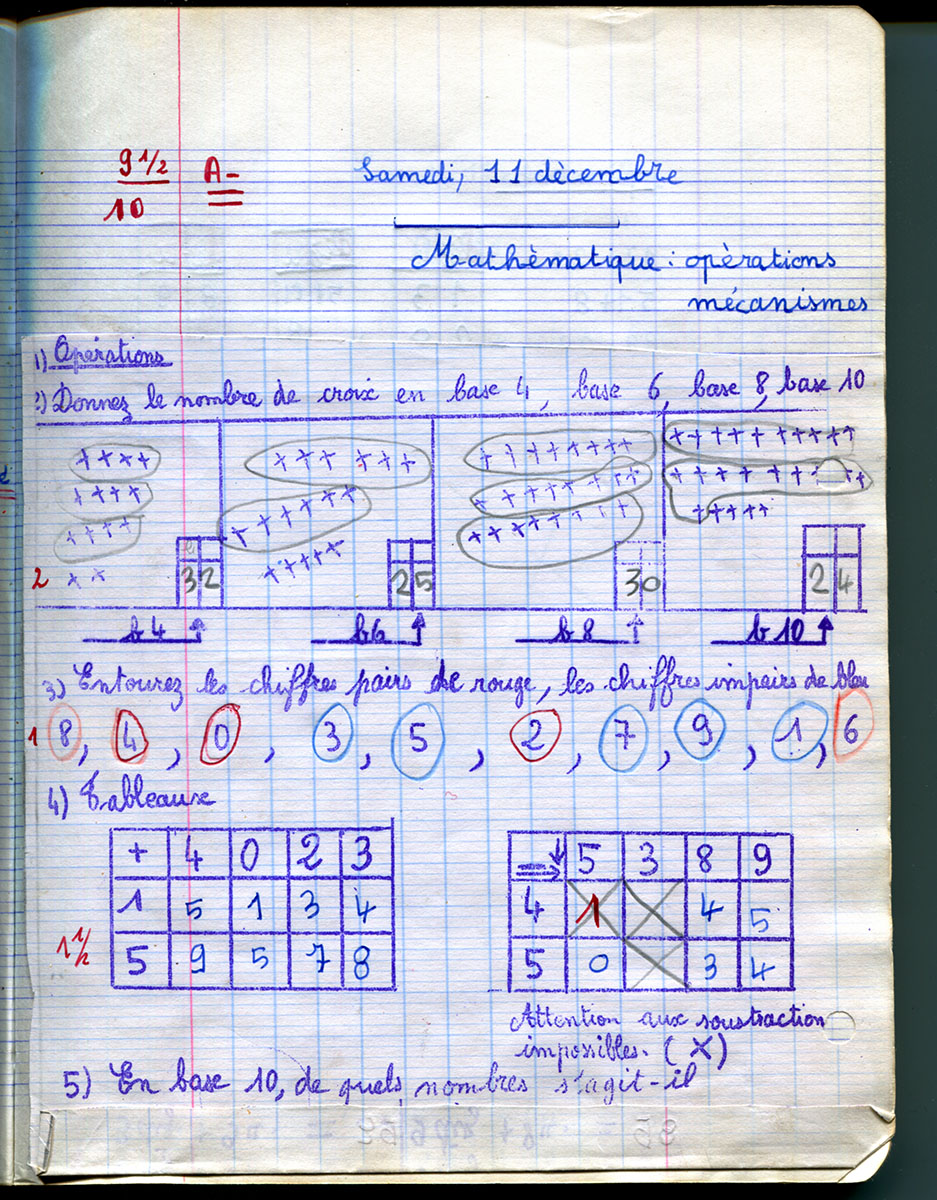 9 1/2
10
A-
Samedi, 11 dècembre
Mathèmatique : opèrations
mécanismes
1) Opèrations
2) Donnez le nombre de croix en base 4, base 6, base 8, base 10
2
32
25
30
24
b4
b6
b8
b10
3) Entourez les chiffres pairs de rouge, les chiffres impairs de bleu
1
8, 4, 0, 3, 5, 2, 7, 9, 1, 6
4) Tableaux
+ 4 0 2 3
1 5 1 3 4
1 1/2
5 9 5 7 8
5 3 8 9
4 1 X 4 5
5 0 X 3 4
Attention aux soustraction
impossibles. (X)
5) En base 10, de quels nombres s'agit-il